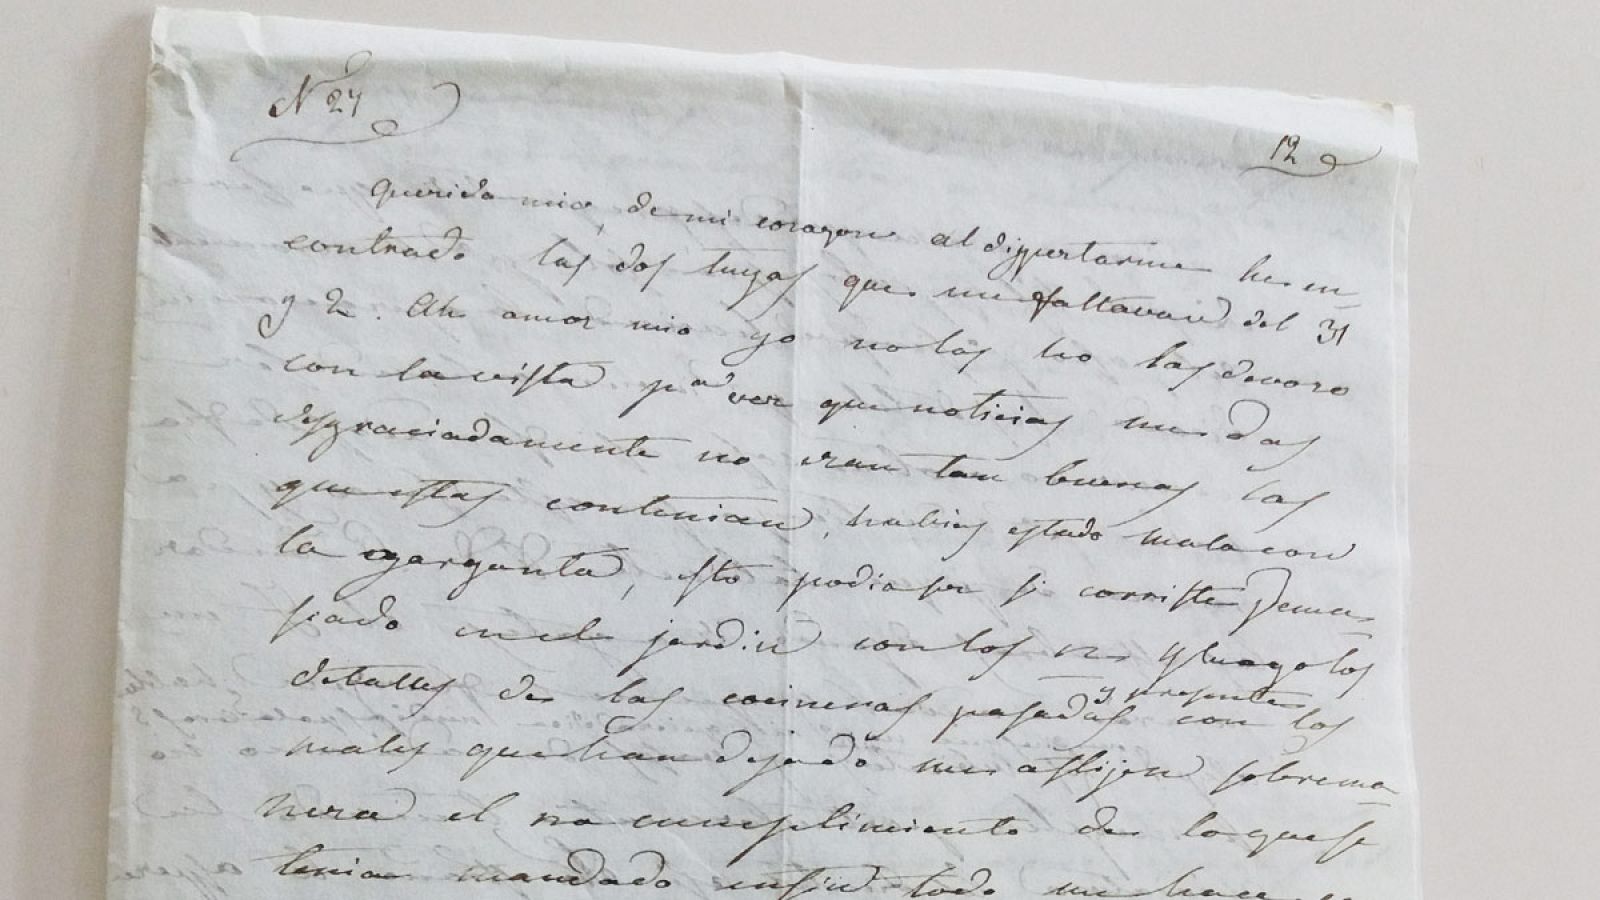 Nº 27
12
Querida mia, de mi corazon al dispertarme he en-
contrado las dos tuyas que me faltavan del 31
y 2. Ah amor mio yo no las leo las devoro
con la vista pª ver que noticias me das
desgraciadamente no eran tan buenas las
que estas contenian, habias estado mala con
la garganta, esto podia ser si corriste dema-
siado en el jardin con los y luego los
detalles de las cocineras pasadas y presentes con los
males que han dejado me aflijen sobrema-
nera el no cumplimiento de lo que se
tenia mandado enfin todo me hace